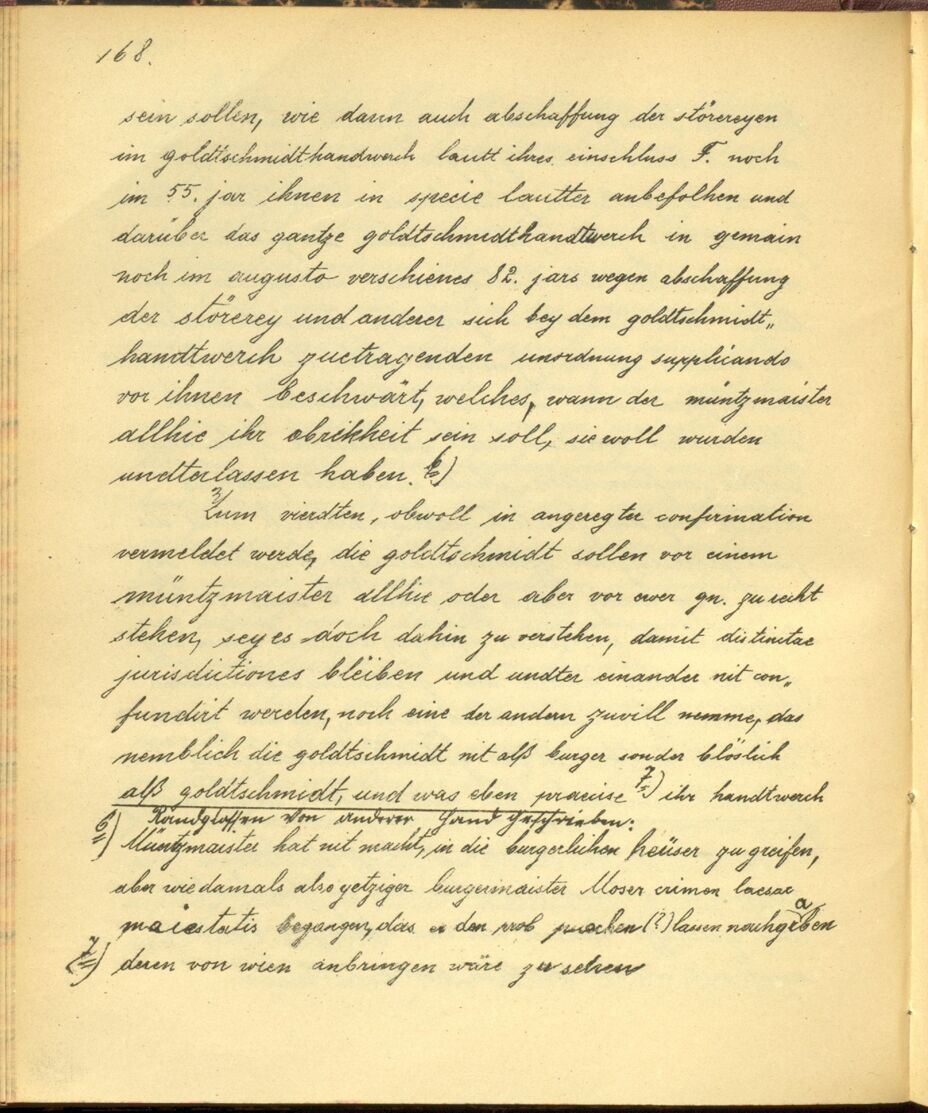 168.
sein sollen, wie dann auch abschaffung der störereyen
im goldtschmidthandwerch lautt ihres einschluss F. noch
im 55. jar ihnen in specie lautter anbefolhen und
darüber das gantze goldtschmidthandtwerch in gemain
noch im augusto verschienes 82. jars wegen abschaffung
der störerey und anderer sich bey dem goldtschmidt„
handtwerch zuetragenden unordnung supplicando
vor ihnen beschwärt, welches, wann der müntzmaister
allhie ihr obrikheit sein soll, sie woll wurden
undterlassen haben. 6)
Zum vierdten, obwoll in angeregter confirmation
vermeldet werde, die goldtschmidt sollen vor einem
müntzmaister allhie oder aber vor ewer gn. zu recht
stehen, sey es doch dahin zu verstehen, damit distinctae
jurisdictiones bleiben und undter einander nit con„
fundirt werden, noch eine der andern zuvill nemme, das
nemblich die goldtschmidt nit alß burger sonder blöslich
alß goldtschmidt, und was eben praecise 7) ihr handtwerch
Randglossen von anderer Hand geschrieben:
6) Müntzmaister hat nit macht, in die burgerlichen heüser zu greifen,
aber wie damals also yetziger burgermaister Moser crimen laesae
maiestatis begangen, das er den prob machen (?) lassen nachgaben
7) deren von wien anbringen wäre zu sehen